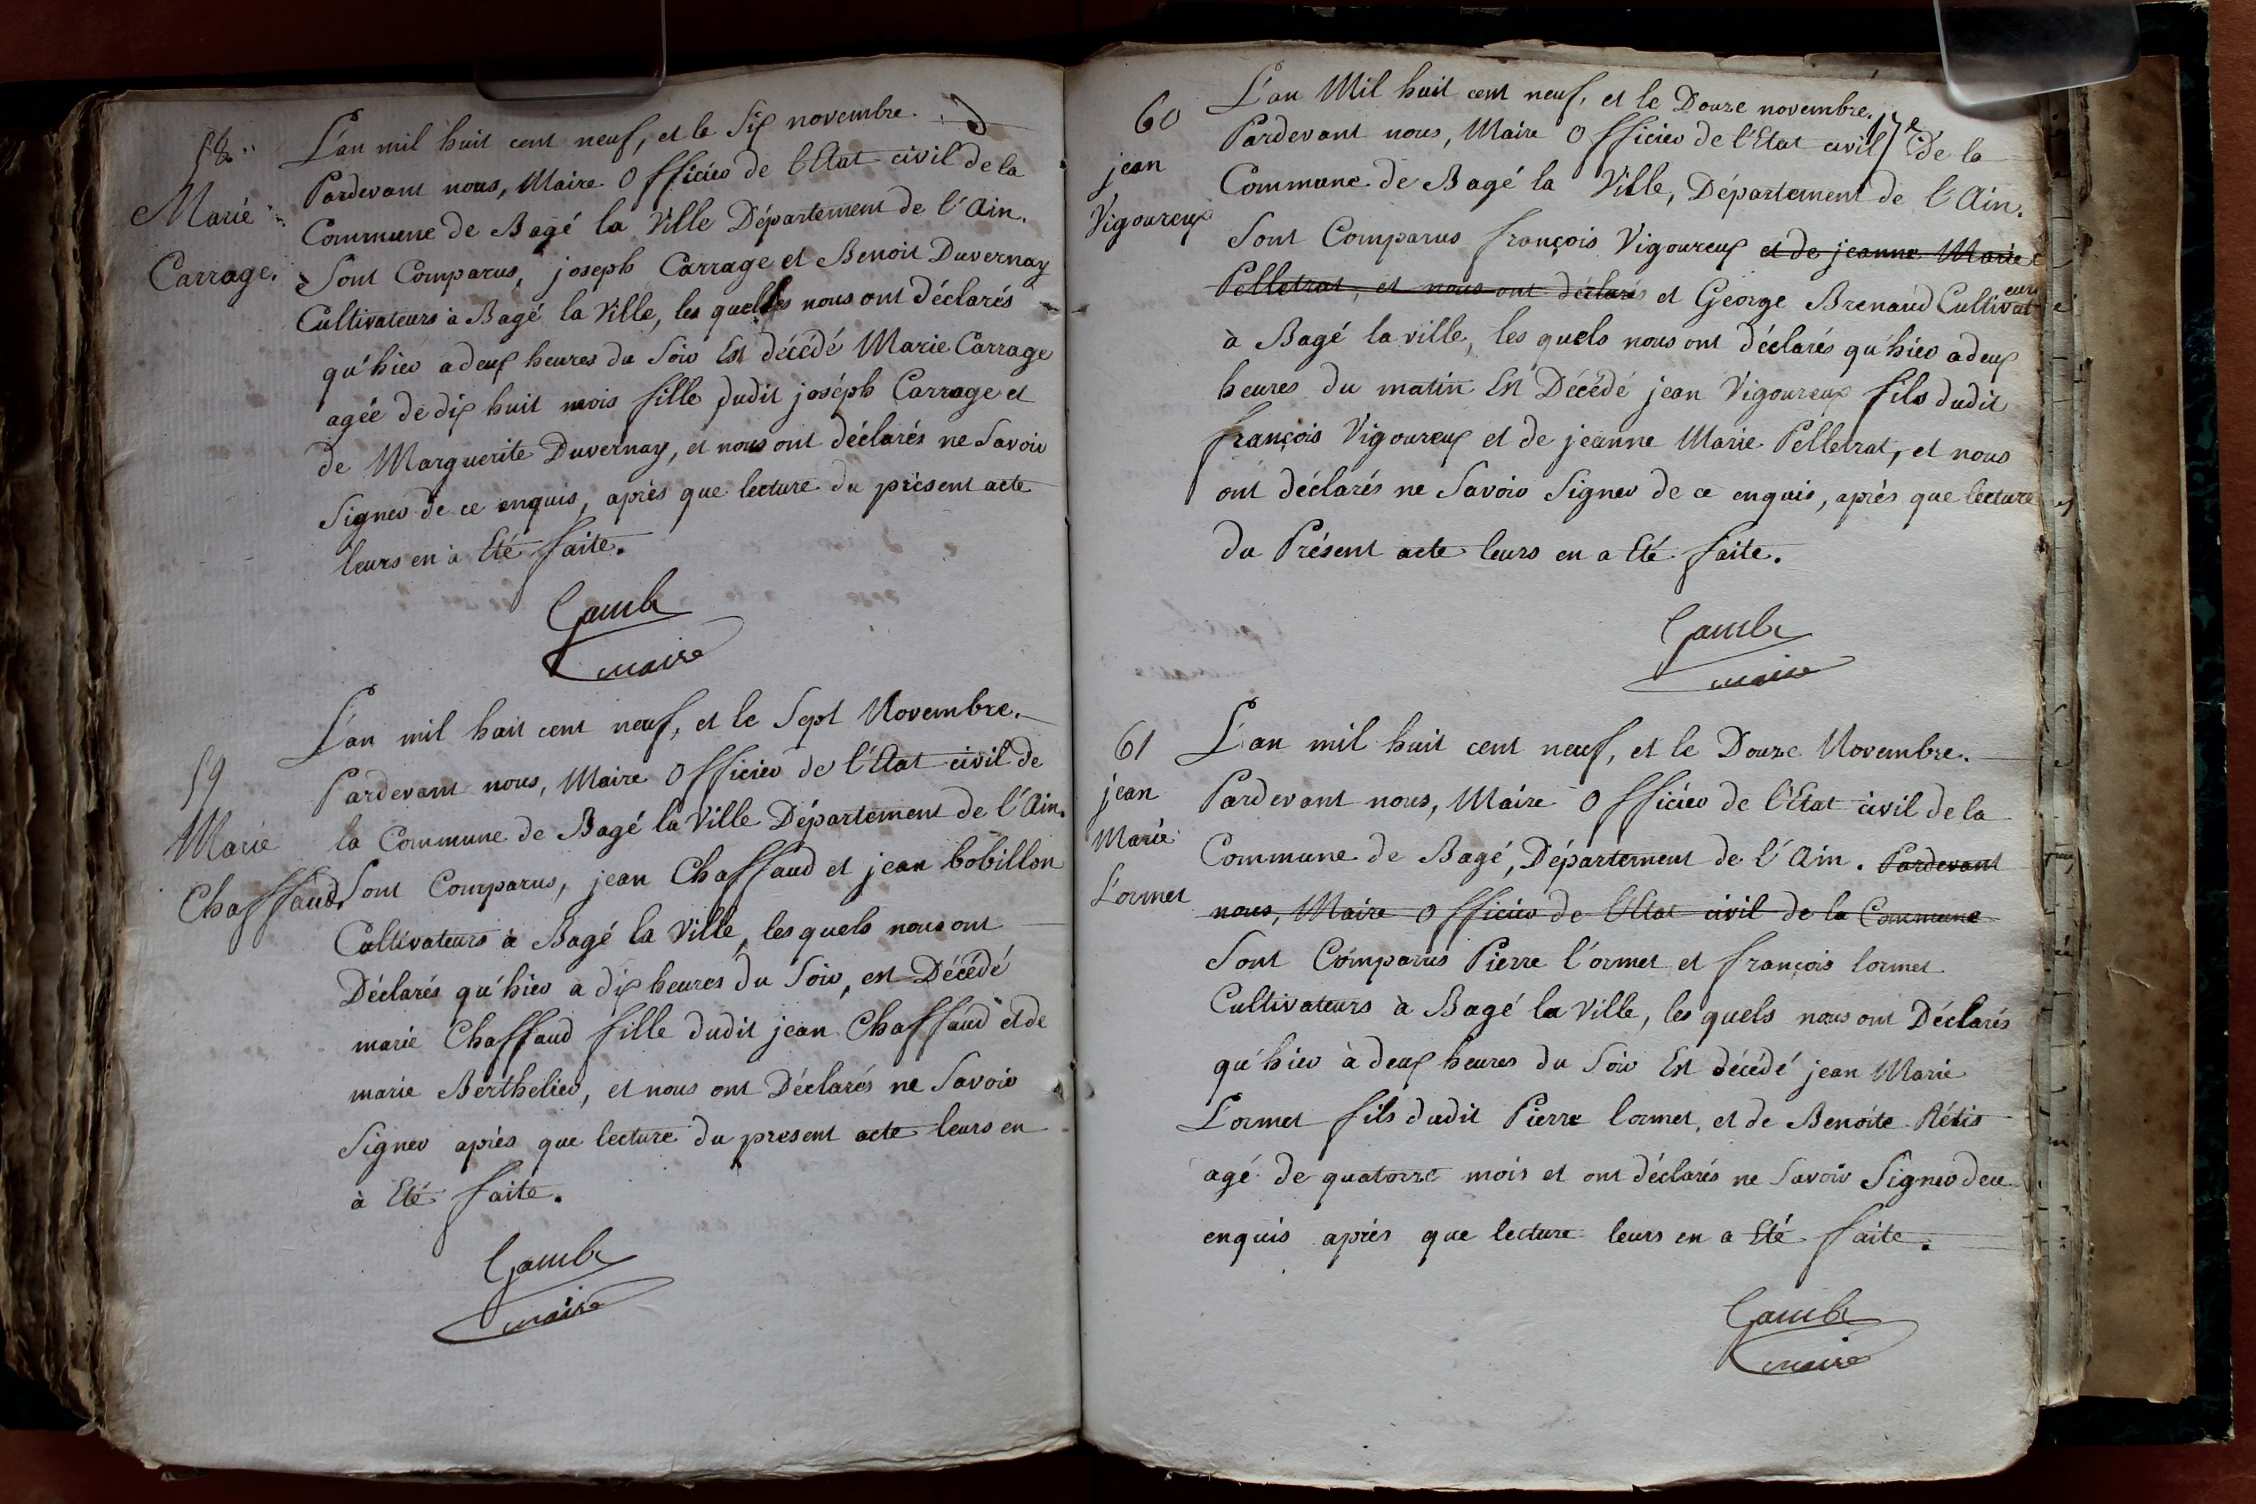 58.
Marie
Carrage.
L'an mil huit cent neuf, et le Six novembre.
Pardevant nous, Maire Officier de l'Etat civil de la
Commune de Bagé la Ville Département de l'Ain.
Sont Comparus, joseph Carrage et Benoit Duvernay
Cultivateurs à Bagé la Ville, les quelles nous ont déclarés
qu'hier a deux heures du Soir Est décédé Marie Carrage
agée de dix huit mois fille dudit joséph Carrage et
de Marguerite Duvernay, et nous ont déclarés ne Savoir
Signer de ce enquis, après que lecture du présent acte
leurs en à Eté faite.
Gamb
maire
59
Marie
Chaffaud.
L'an mil huit cent neuf, et le Sept Novembre.
Pardevant nous, Maire Officier de l'Etat civil de
la Commune de Bagé la Ville Département de l'Ain.
Sont Comparus, jean Chaffaud et jean bobillon
Cultivateurs à Bagé la Ville, les quels nous ont
Déclarés qu'hier à dix heures du Soir, est Décédé
marie Chaffaud fille dudit jean Chaffaud et de
marie Berthelier, et nous ont Déclarés ne Savoir
Signer après que lecture du present acte leurs en
à Eté faite.
Gamb
maire
60
jean
Vigoureux
L'an Mil huit cent neuf, et le Douze novembre.
Pardevant nous, Maire Officier de l'Etat civil de la
Commune de Bagé la Ville, Département de l'Ain.
Sont Comparus françois Vigoureux et de jeanne Marie
Pelletrat, et nous ont déclarés et George Brenaud Cultivateurs
à Bagé la ville, les quels nous ont déclarés qu'hier a deux
heures du matin Est Décédé jean Vigoureux fils dudit
françois Vigoureux et de jeanne Marie Pelletrat, et nous
ont déclarés ne Savoir Signer de ce enquis, après que lecture
du Présent acte leurs en a Eté faite.
Gamb
maire
61
jean
Marie
Lormet
L'an mil huit cent neuf, et le Douze Novembre.
Pardevant nous, Maire Officier de l'Etat civil de la
Commune de Bagé, Département de l'Ain. Pardevant
nous, Maire Officier de l'Etat civil de la Commune
Sont Comparus Pierre l'ormet et françois lormet
Cultivateurs à Bagé la Ville, les quels nous ont Déclarés
qu'hier à deux heures du Soir Est décédé jean Marie
Lormet fils dudit Pierre lormet, et de Benoite Rétis
agé de quatorze mois et ont déclarés ne Savoir Signer de ce
enquis après que lecture leurs en a Eté faite.
Gamb
maire